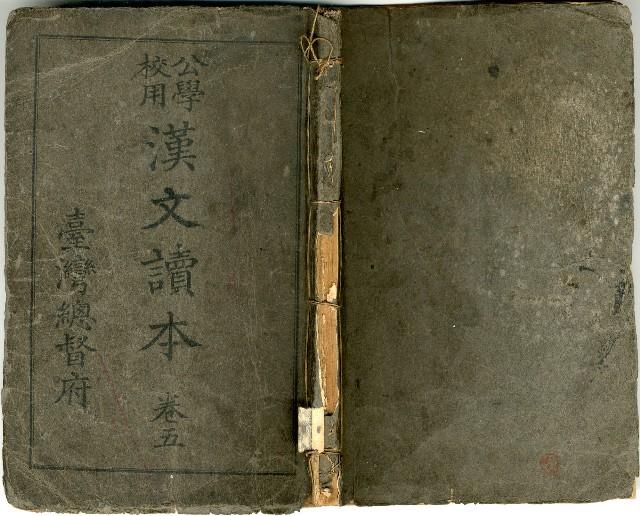 公學
校用
漢文讀本
卷五
臺灣總督府